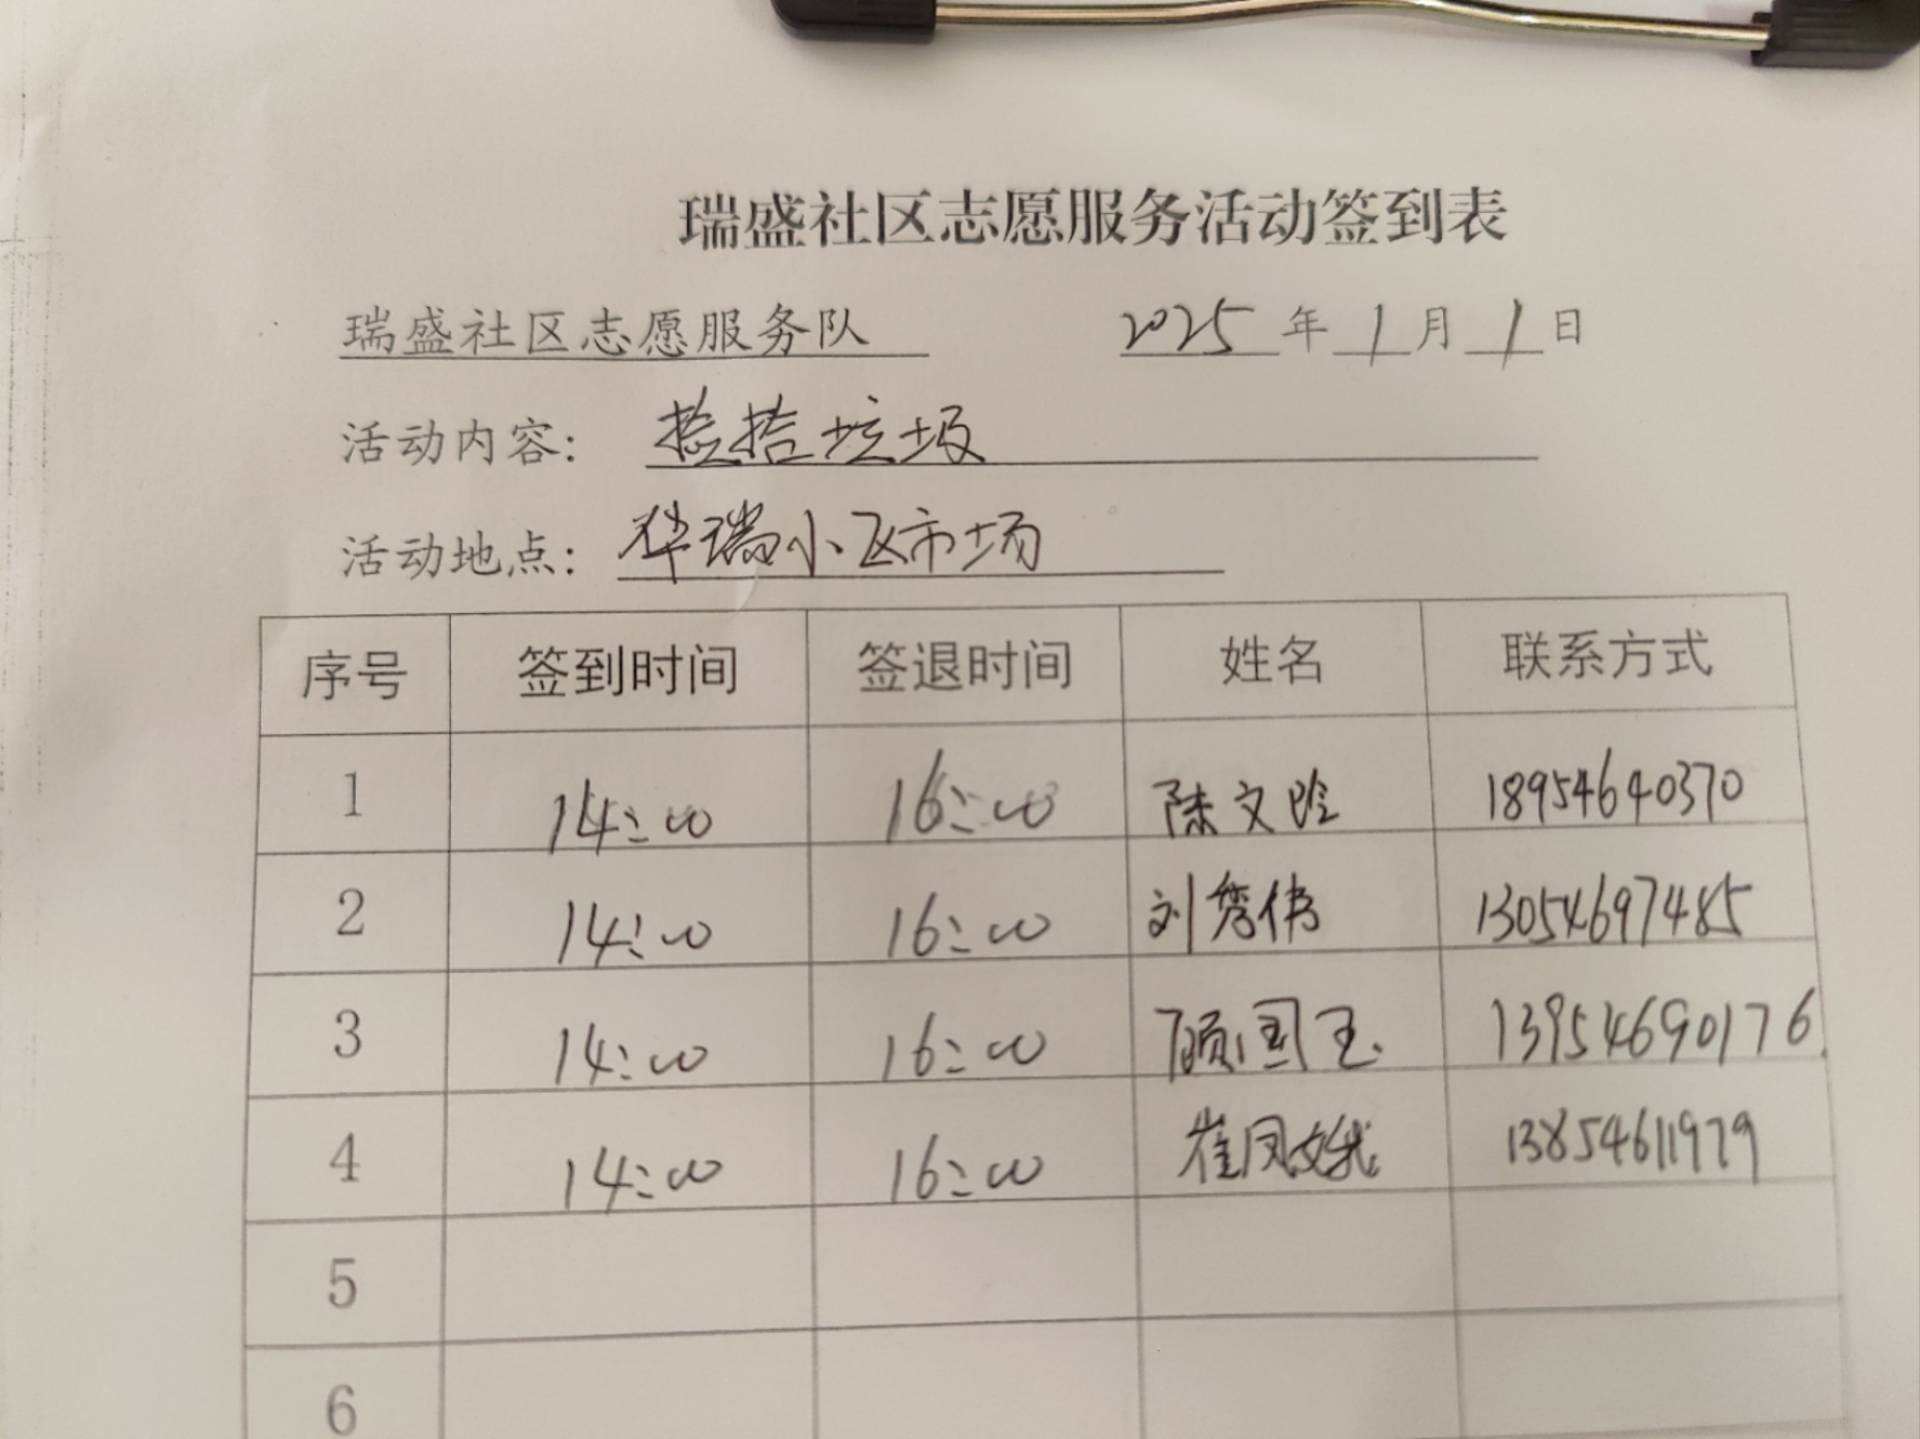 瑞盛社区志愿服务活动签到表
瑞盛社区志愿服务队 2025年1月1日
活动内容：捡拾垃圾
活动地点：华瑞小区市场
序号 签到时间 签退时间 姓名 联系方式
1 14:00 16:00 陈文玲 18954640370
2 14:00 16:00 刘秀伟 13054697485
3 14:00 16:00 顾国玉 13954690176
4 14:00 16:00 崔凤娥 13854611979
5
6